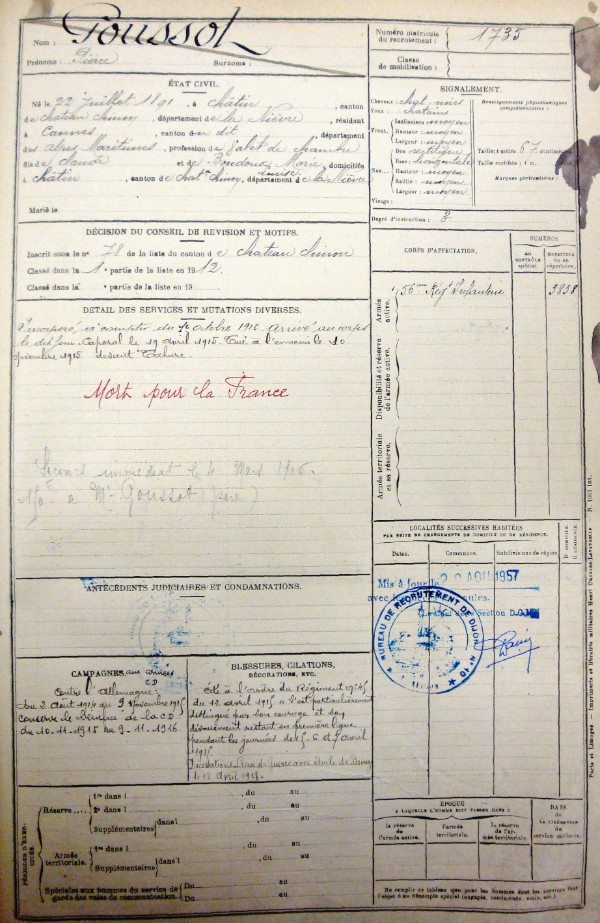 Nom : Goussot
Prénoms : Pierre Surnoms :
Numéro matricule du recrutement : 1735
Classe de mobilisation :
ÉTAT CIVIL.
Né le 22 Juillet 1891, à Châtin, canton
de Château Chinon, département de la Nièvre, résidant
à Cannes, canton du dit, département
des Alpes Maritimes, profession de valet de chambre
fils de Claude et de Boudoux Marie Louise, domiciliés
à Châtin, canton de Chat. Chinon, département de la Nièvre
Marié le
SIGNALEMENT.
Cheveux chat. noirs
Yeux chatains
Front. Inclinaison moyen
Hauteur : moyen
Largeur : moyen
Nez. Dos : rectiligne
Base : horizontale
Hauteur : moyen
Saillie : moyen
Largeur : moyen
Visage :
Renseignements physionomiques complémentaires :
Taille : 1 mètre 67 centimètres
Taille rectifiée : 1 m.
Marques particulières :
Degré d'instruction : 3
DÉCISION DU CONSEIL DE REVISION ET MOTIFS.
Inscrit sous le n° 78 de la liste du canton de Château Chinon
Classé dans la 1e partie de la liste en 1912.
Classé dans la partie de la liste en 19
CORPS D'AFFECTATION.
NUMÉROS
au contrôle spécial.
matricule ou au répertoire.
Armée active.
56ème Régt Infanterie
3858
Disponibilité et réserve de l'armée active.
Armée territoriale et sa réserve.
DETAIL DES SERVICES ET MUTATIONS DIVERSES.
Incorporé à compter du octobre Arrivé au corps
le dit jour. Caporal le 19 avril 1915. Tué à l'ennemi le 10
novembre 1915 devant Tahure.
Mort pour la France
Secours immédiat le 4 Mars 1916.
150f à Mr Goussot (père)
LOCALITÉS SUCCESSIVES HABITÉES
PAR SUITE DE CHANGEMENTS DE DOMICILE OU DE RÉSIDENCE.
Dates. Communes. Subdivisions de région. D. domicile. R. résidence.
Mis à jour le 20 AOU 1957
BUREAU DE RECRUTEMENT DE DIJON
ANTÉCÉDENTS JUDICIAIRES ET CONDAMNATIONS.
CAMPAGNES. aux armées
CD
Contre l'Allemagne :
du 2 Aout 1914 au 9 Novembre 1915
conserve le bénéfice de la CD
du 10-11-1915 au 9-11-1916
BLESSURES, CITATIONS,
DÉCORATIONS, ETC.
Cité à l'ordre du Régiment n° 45
du 12 avril 1915 "s'est particulièrement
distingué par son courage et son
dévouement restant en première ligne
pendant les journées de 5-6 et 7 avril
1915.
Décorations Croix de guerre avec étoile de Bronze
PÉRIODES D'EXERCICES.
Réserve
1re dans l , du au
2e dans l , du au
Supplémentaires dans l , du au
, du au
Armée territoriale.
1re dans l , du au
Supplémentaires dans l , du au
, du au
Spéciales aux hommes du service de garde des voies de communication.
Du au
Du au
ÉPOQUE
A LAQUELLE L'HOMME DOIT PASSER DANS :
la réserve de l'armée active.
l'armée territoriale.
la réserve de l'armée territoriale.
DATE DE LA LIBÉRATION DU SERVICE MILITAIRE.
Ne remplir ce tableau que pour les hommes dont les services ont fait l'objet d'un décompte spécial (engagés, condamnés, omis, etc.)